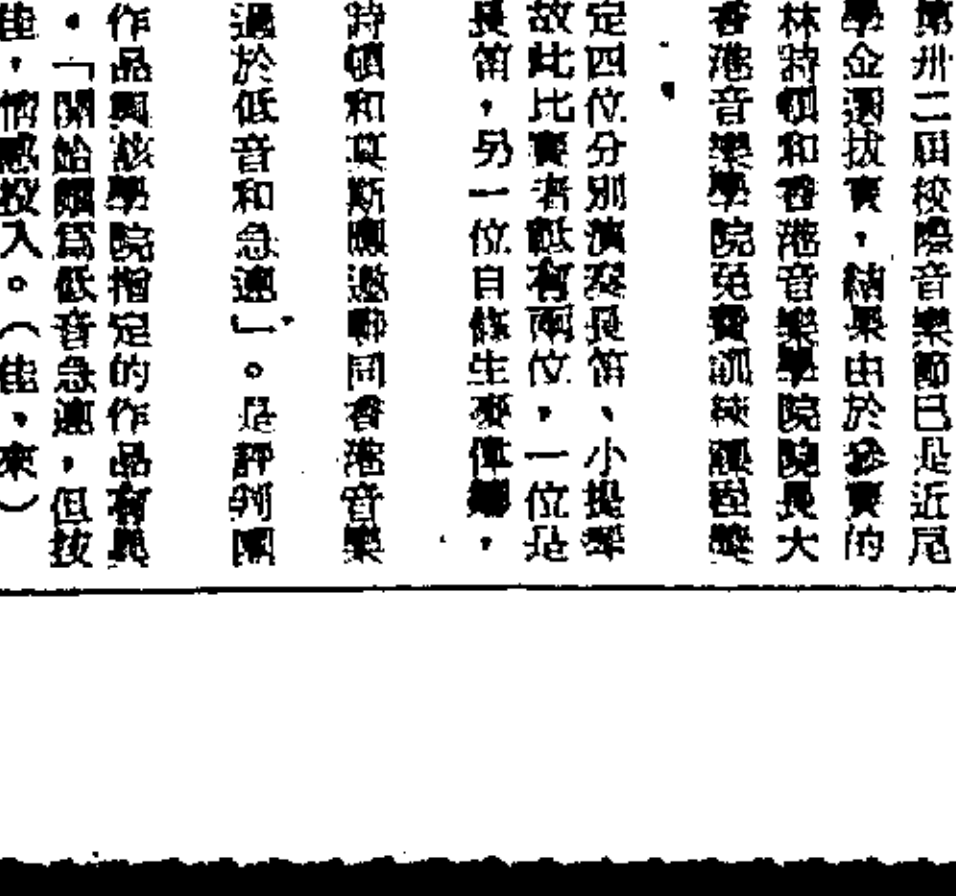 第卅二屆校際音樂節已是近尾
學金選拔賽，結果由於參賽的
林特頓和香港音樂學院院長大
香港音樂學院免費訓練課程獎
定四位分別演奏長笛、小提琴
故此比賽者祇有兩位，一位是
長笛，另一位自修生麥偉，
特頓和莫斯應邀聯同香港音樂
過於低音和急速」。是評判團
作品與該學院指定的作品有異
。「開始爲低音急速，但技
佳，情感投入。（佳，來）